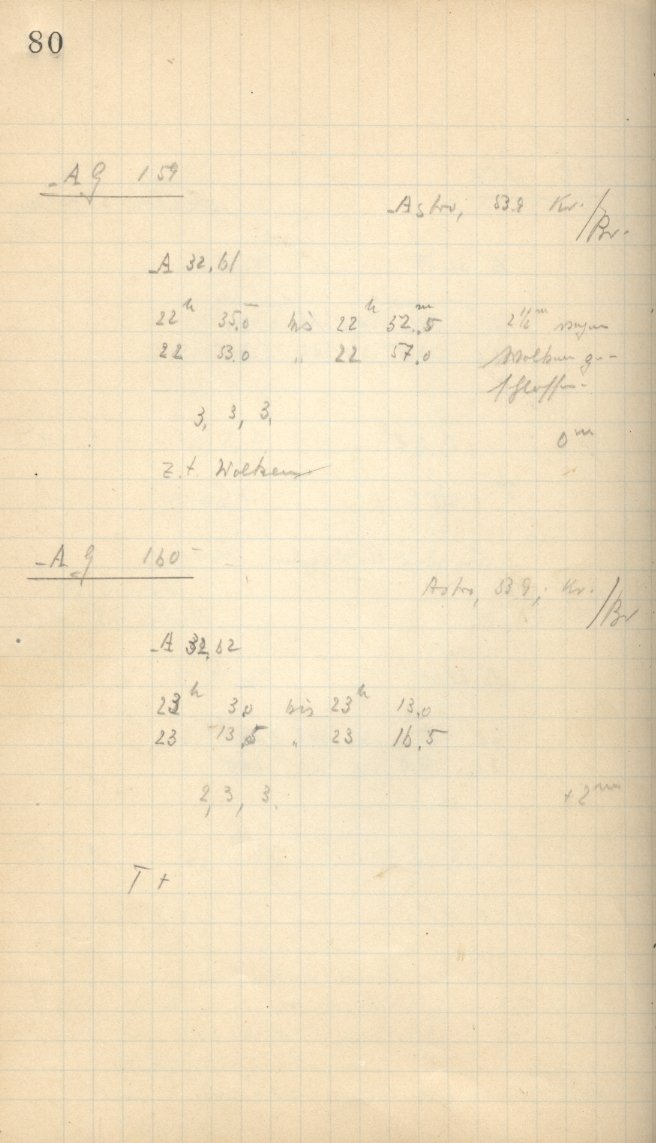 80
A G 159
Astro, 53.9 Kr./Br.
A 32,61
22h 35,0 bis 22h 52m,5 wegen
22 53,0 " 22 57,0 Wolken ge-
schlossen.
3, 3, 3,
0m
z.t. Wolken
A G 160
Astro, 53 9, Kr./Br
A 32,62
23h 3,0 bis 23h 13,0
23 13,5 " 23 16,5
2, 3, 3. +2mm
T +